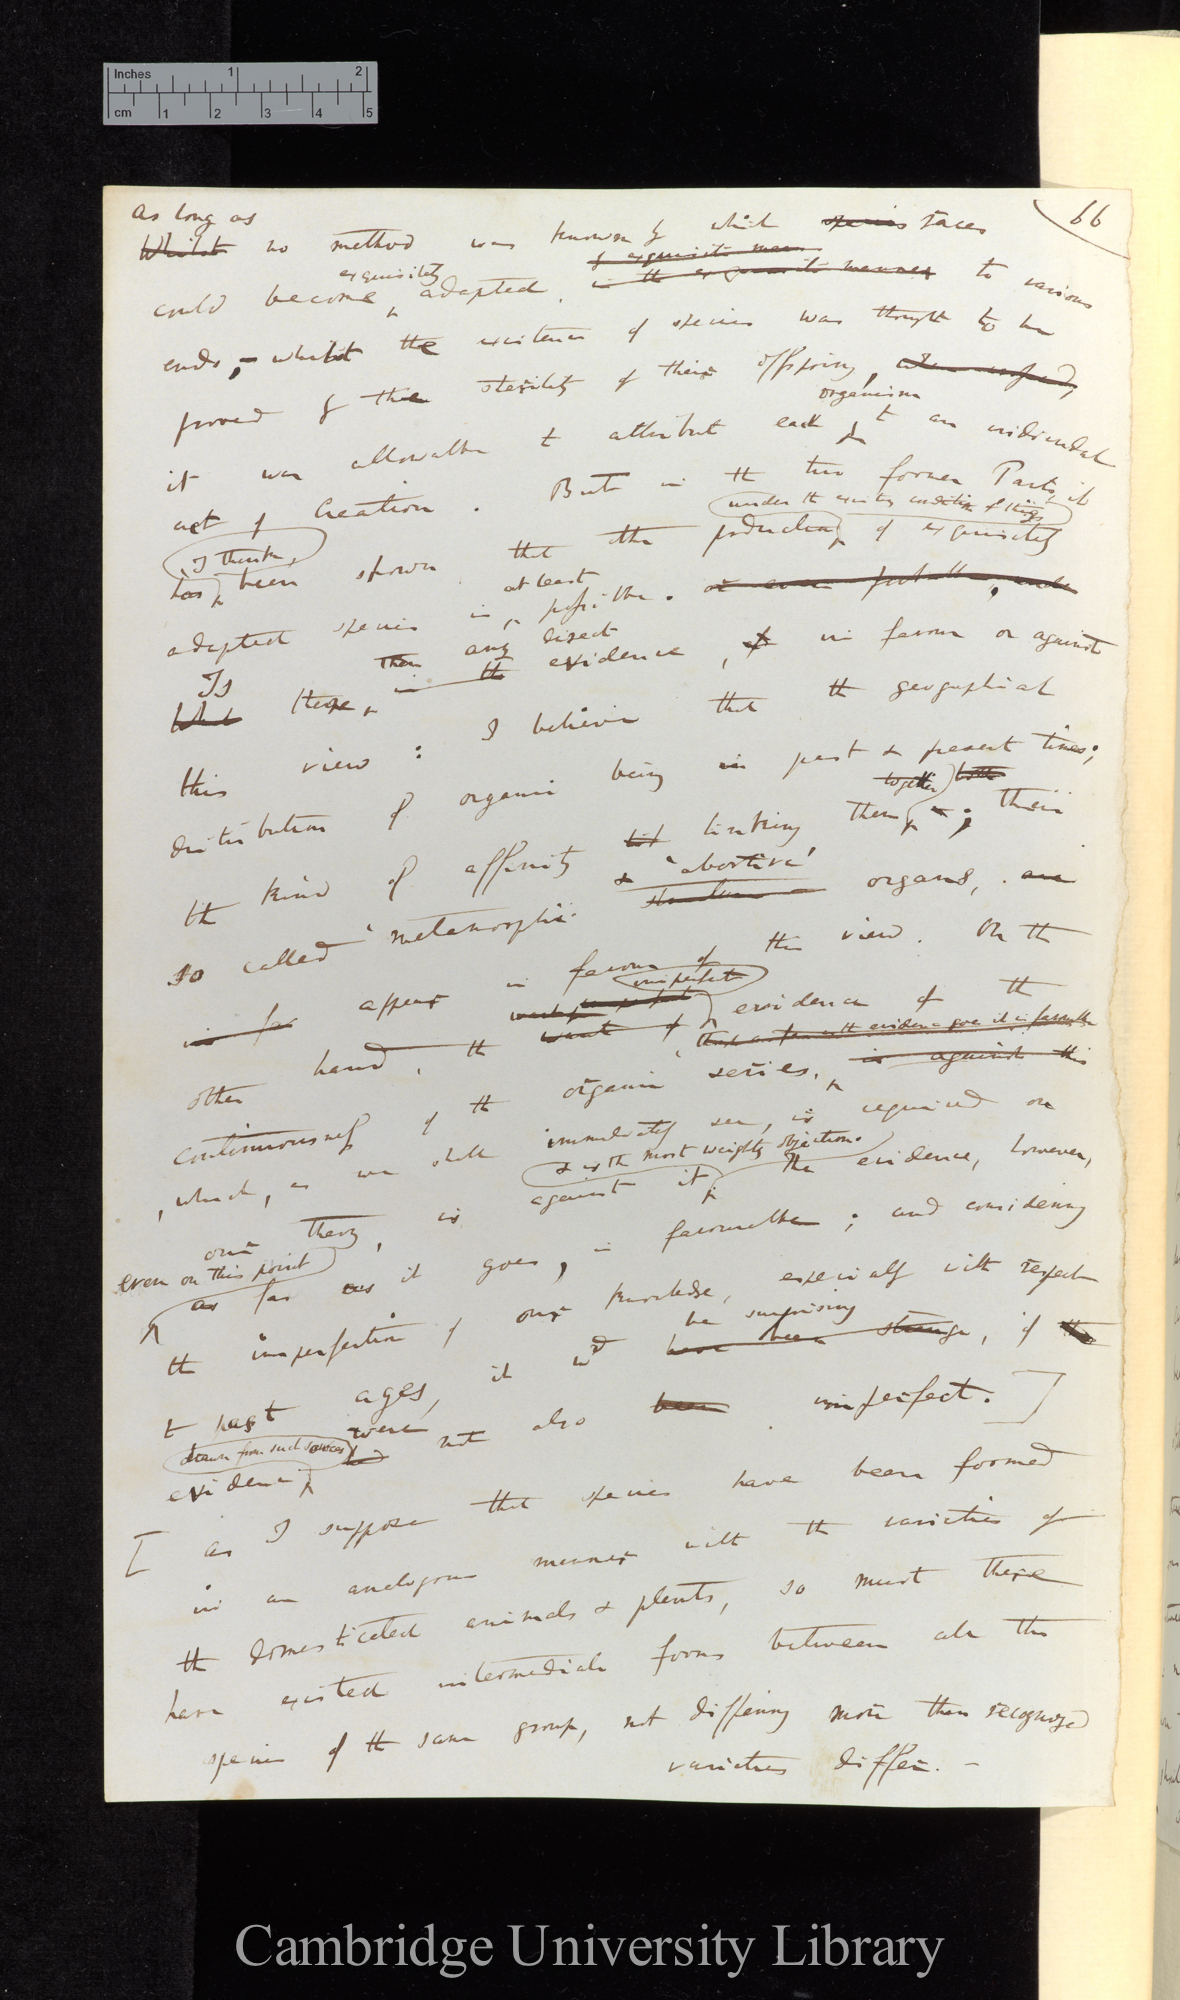 Inches 1 2
cm 1 2 3 4 5
66
as long as
Whilst no method was known by which species races
exquisitely
could become adapted in the exquisite manner to various
ends; – whilst the existence of species was thought to be
proved by the sterility of their offspring,
organism
it was allowable to attribute each to an individual
act of Creation. But in the two former Parts, it
under the existing condition of things
I think,
has been shown that the production of exquisitely
at least
adapted species is possible. or even probable, under
Is then any direct
What there in the evidence, of in favour or against
this view: I believe that the geographical
distribution of organic beings in past & present times;
together both
the kind of affinity all linking them; their
& 'abortive'
so called 'metamorphic' organs, are
in far appear in favour of this view. On the
imperfect
other hand, the want of evidence of the
continuousness of the organic series, is against this
, which, as we shall immediately see, is required on
& is the most weighty objection.
our theory, is against it; The evidence, however,
even on this point
as far as it goes, is favourable; and considering
the imperfection of our knowledge, especially with respect
be surprising
to past ages, it wd have been strange, if the
drawn from such sources were
evidence had not also been imperfect. ]
[ as I suppose that species have been formed
in an analogous manner with the varieties of
the domesticated animals & plants, so must there
have existed intermediate forms between all the
species of the same group, not differing more than recognized
varieties differ. –
Cambridge University Library